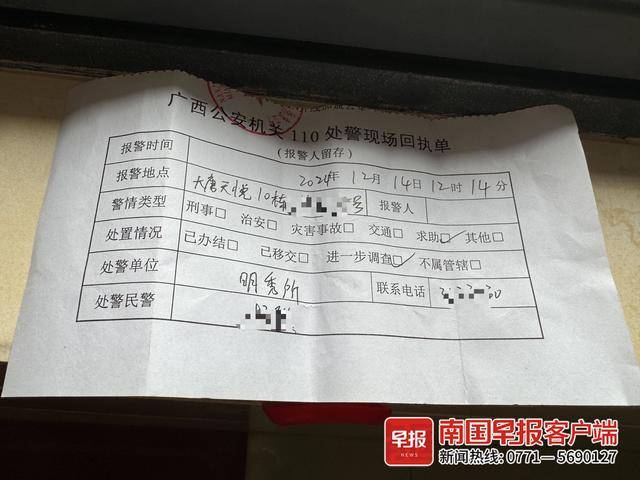 广西公安机关110处警现场回执单
(报警人留存)
报警时间 2024年12月14日12时14分
报警地点 大唐天悦10栋 号 报警人
警情类型 刑事□ 治安□ 灾害事故□ 交通□ 求助☑ 其他□
处置情况 已办结□ 已移交□ 进一步调查☑ 不属管辖□
处警单位 明秀所 联系电话
处警民警
早报 南国早报客户端
NEWS 新闻热线: 0771—5690127